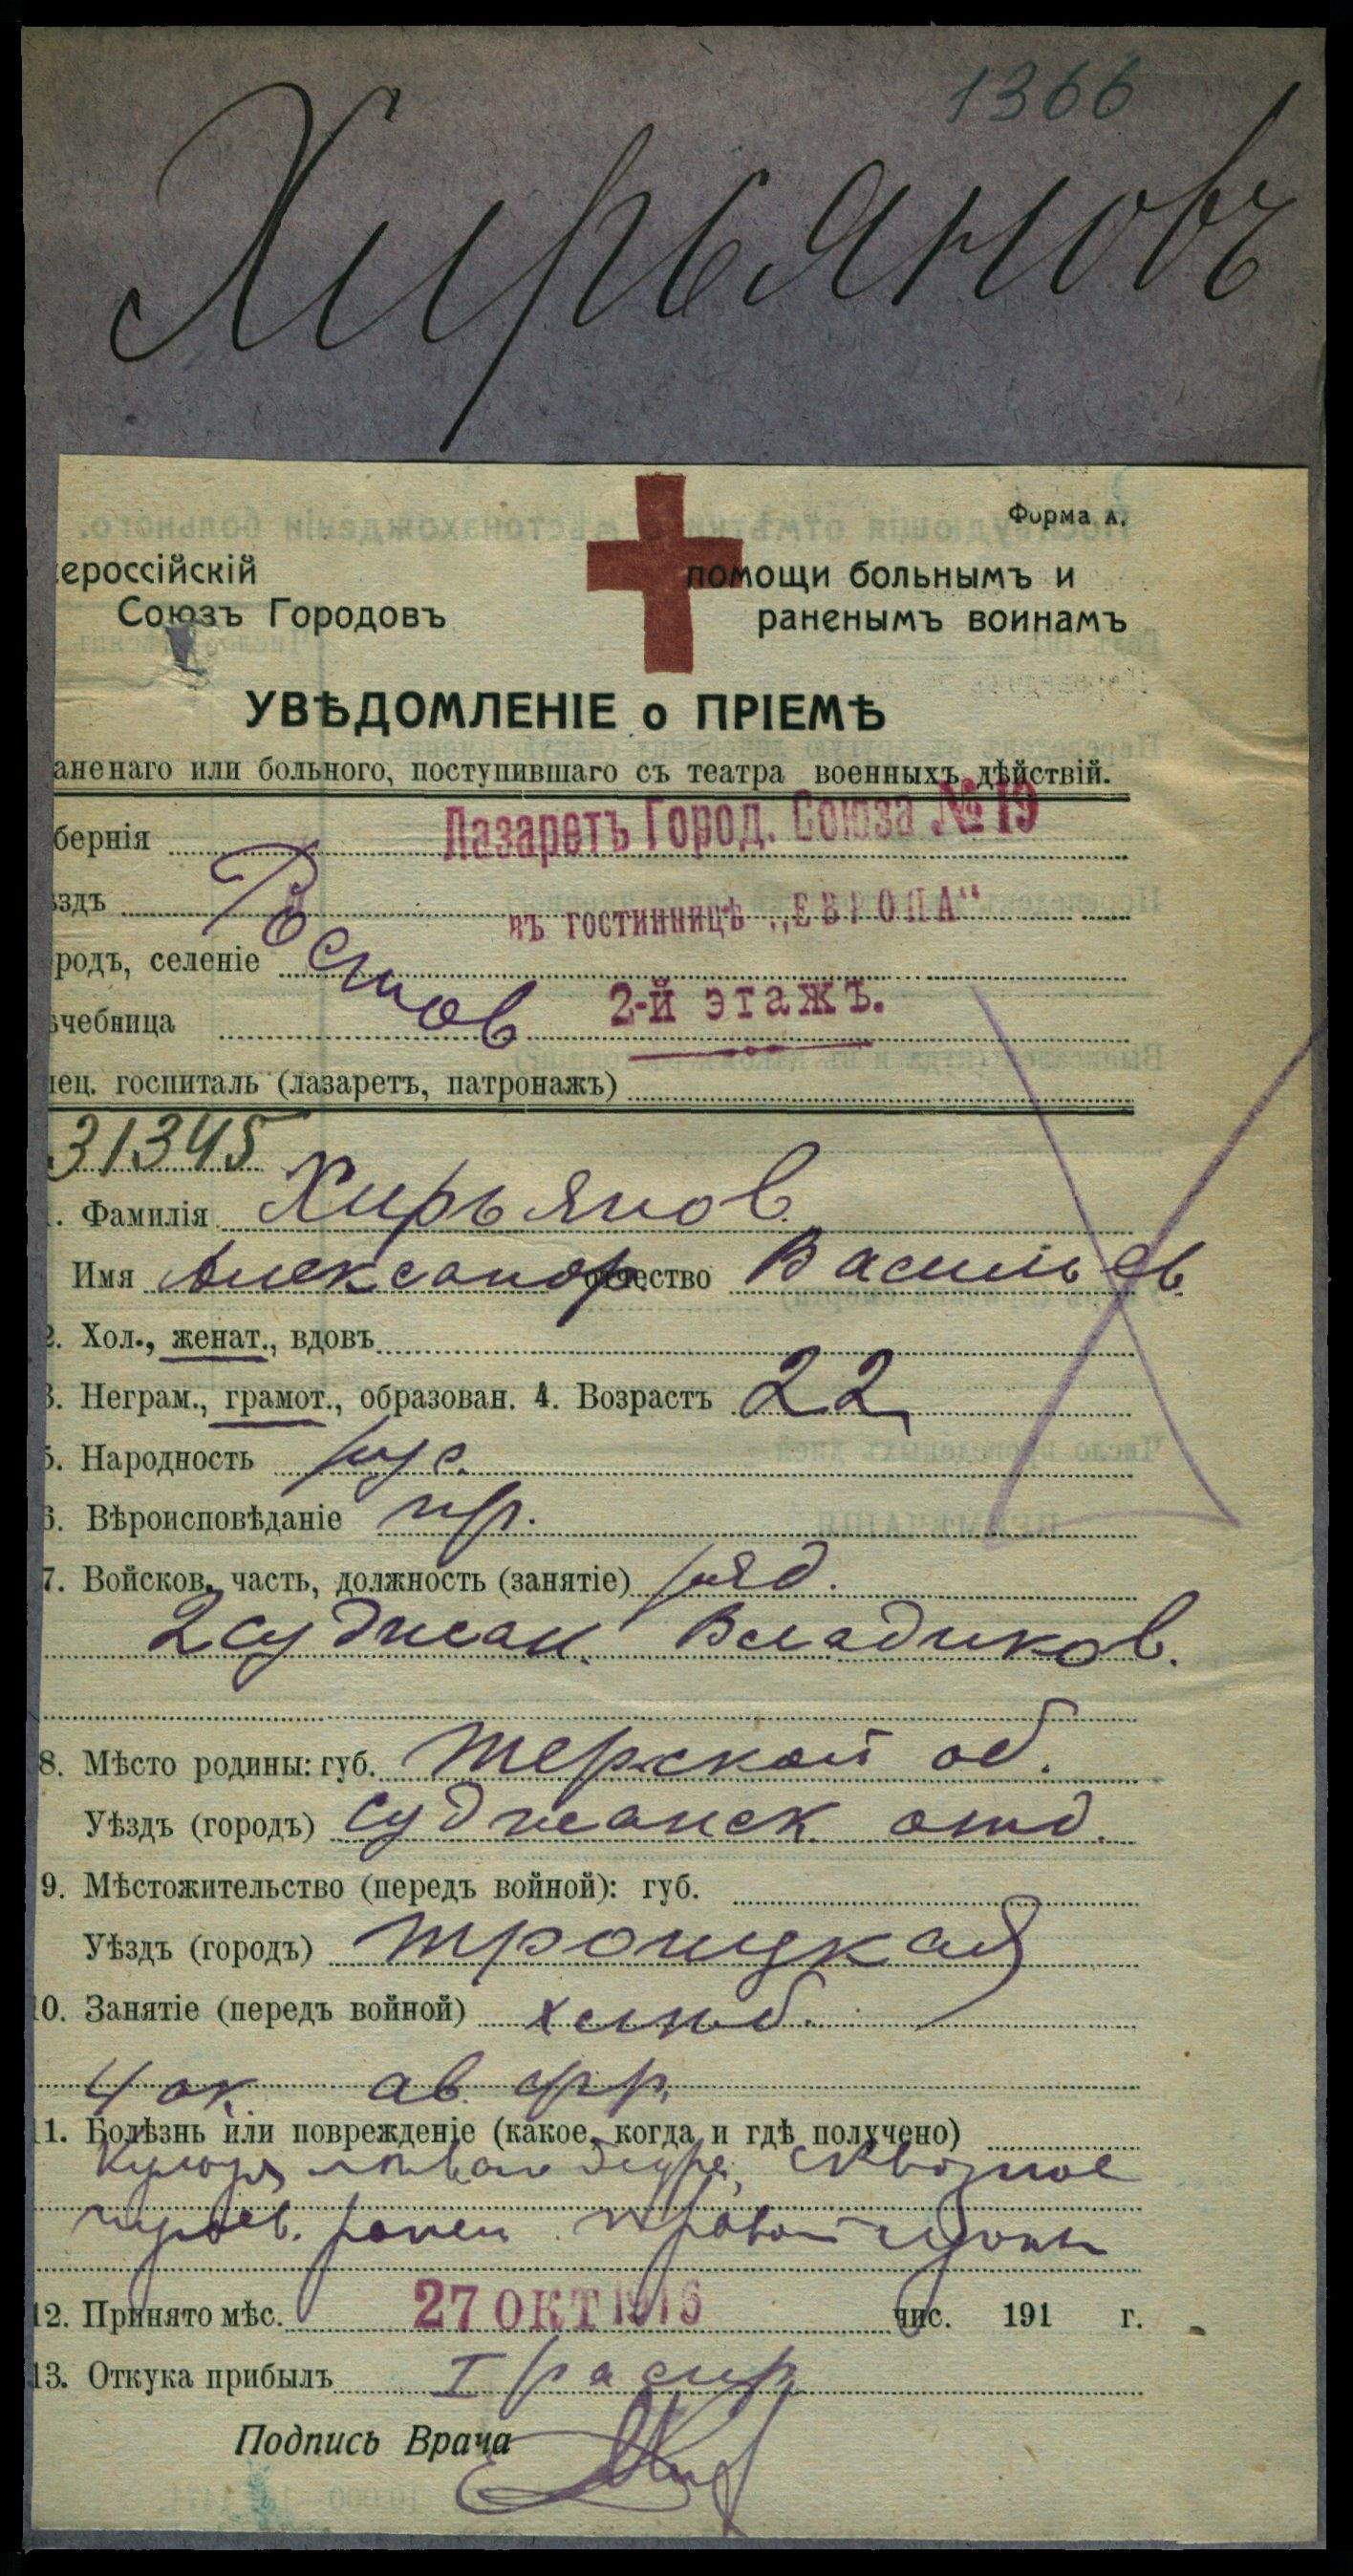 1366
Хирьяновъ
Форма А.
ероссійскій
помощи больнымъ и
Союзъ Городовъ
раненымъ воинамъ
УВѢДОМЛЕНІЕ о ПРІЕМѢ
аненаго или больного, поступившаго съ театра военныхъ дѣйствій.
Лазаретъ Город. Союза № 19
берніа
ѣздъ
въ гостинницѣ „ЕВРОПА"
родъ, селеніе
Ростов
2-й этажъ.
ѣчебница
пец. госпиталь (лазаретъ, патронажъ)
31345
1. Фамилія Хирьянов.
Имя Александр. отчество Васильев.
2. Хол., женат., вдовъ
3. Неграм., грамот., образован. 4. Возрастъ 22
5. Народность рус.
6. Вѣроисповѣданіе пр.
7. Войсков. часть, должность (занятіе) ряд.
2 суджан. Владиков.
8. Мѣсто родины: губ. Терской об.
Уѣздъ (городъ) суджанск. отд.
9. Мѣстожительство (передъ войной): губ.
Уѣздъ (городъ) Троицкая
10. Занятіе (передъ войной) хлѣб.
4 ок ав.
11. Болѣзнь или поврежденіе (какое, когда и гдѣ получено)
сквозное
ранен. правой
12. Принято мѣс. 27 ОКТ 1916 чис. 191 г.
13. Откука прибылъ I распр.
Подпись Врача